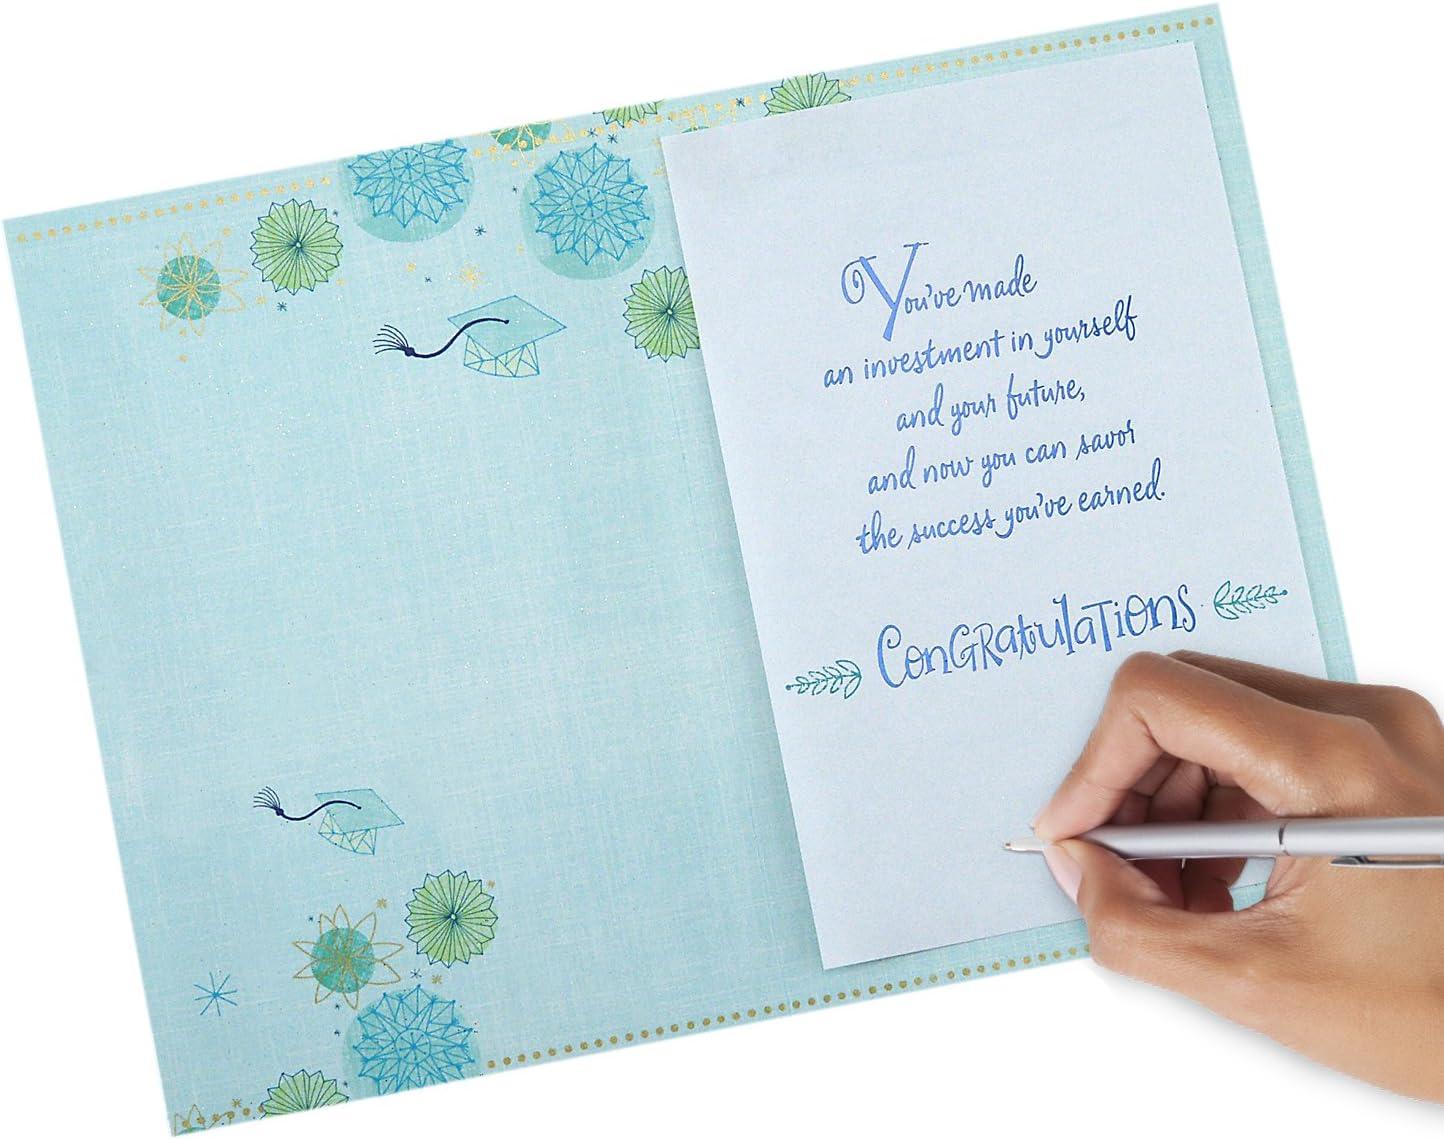 You've made
an investment in yourself
and your future,
and now you can savor
the success you've earned.
CONGRATULATIONS